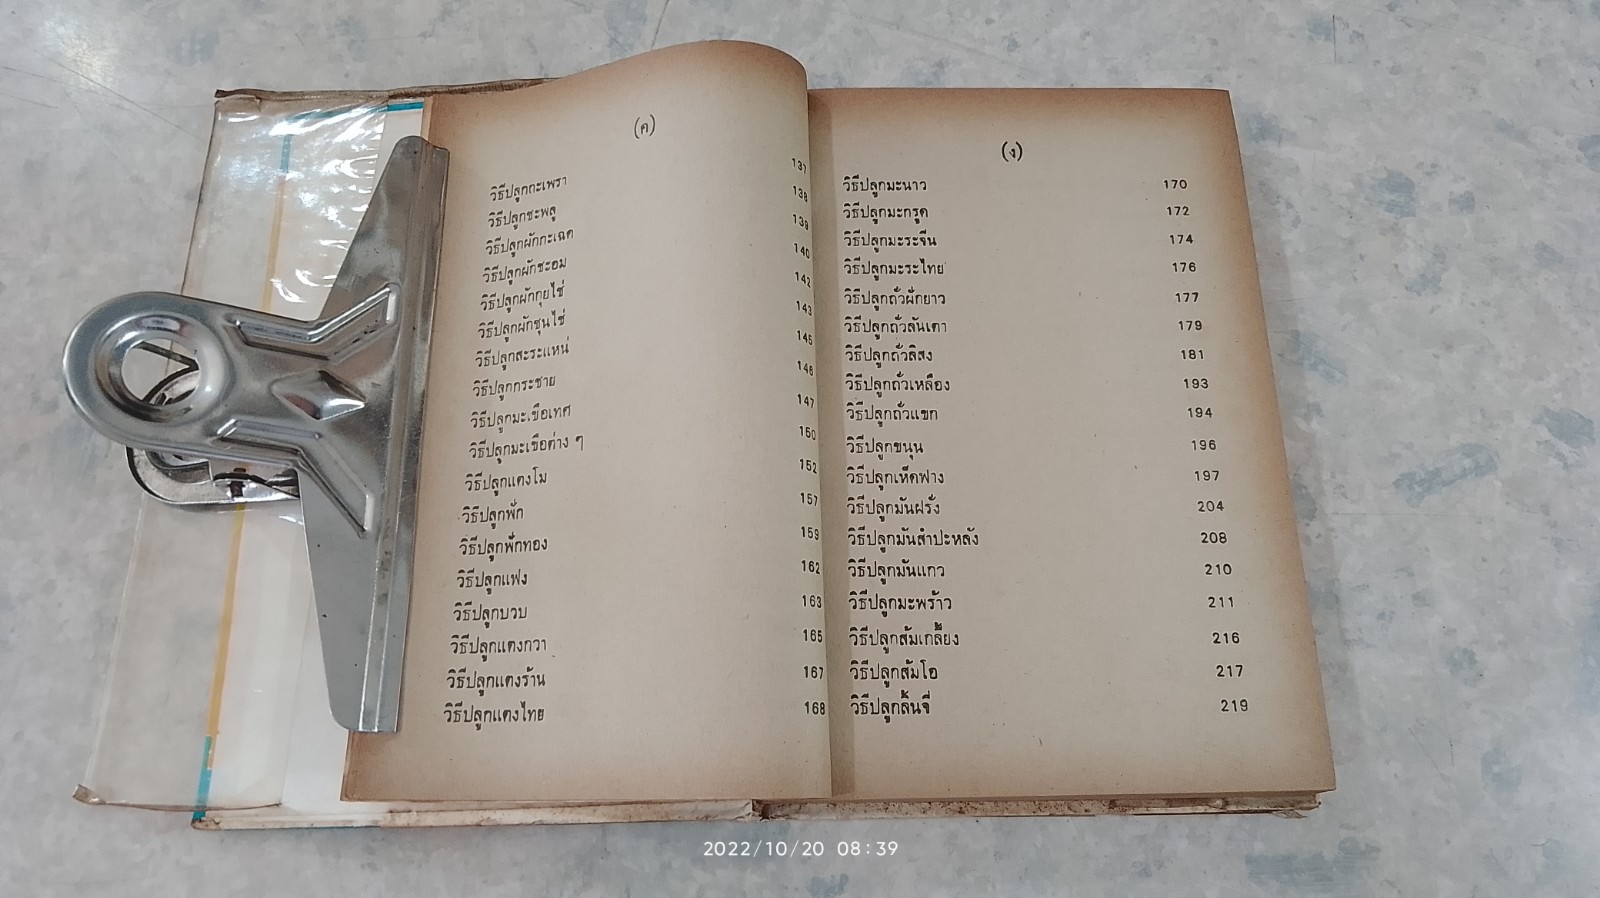 (ค)
วิธีปลูกกะเพรา 137
วิธีปลูกชะพลู 138
วิธีปลูกผักกะเฉด 139
วิธีปลูกผักชะอม 140
วิธีปลูกผักกุยไช่ 142
วิธีปลูกผักขุนไช่ 143
วิธีปลูกสะระแหน่ 145
วิธีปลูกกระชาย 146
วิธีปลูกมะเขือเทศ 147
วิธีปลูกมะเขือต่าง ๆ 150
วิธีปลูกแตงโม 152
วิธีปลูกฟัก 157
วิธีปลูกฟักทอง 159
วิธีปลูกแฟง 162
วิธีปลูกบวบ 163
วิธีปลูกแตงกวา 165
วิธีปลูกแตงร้าน 167
วิธีปลูกแตงไทย 168
(ง)
วิธีปลูกมะนาว 170
วิธีปลูกมะกรูด 172
วิธีปลูกมะระจีน 174
วิธีปลูกมะระไทย 176
วิธีปลูกถั่วฝักยาว 177
วิธีปลูกถั่วลันเตา 179
วิธีปลูกถั่วลิสง 181
วิธีปลูกถั่วเหลือง 193
วิธีปลูกถั่วแขก 194
วิธีปลูกขนุน 196
วิธีปลูกเห็ดฟาง 197
วิธีปลูกมันฝรั่ง 204
วิธีปลูกมันสำปะหลัง 208
วิธีปลูกมันแกว 210
วิธีปลูกมะพร้าว 211
วิธีปลูกส้มเกลี้ยง 216
วิธีปลูกส้มโอ 217
วิธีปลูกลิ้นจี่ 219
2022/10/20 08:39